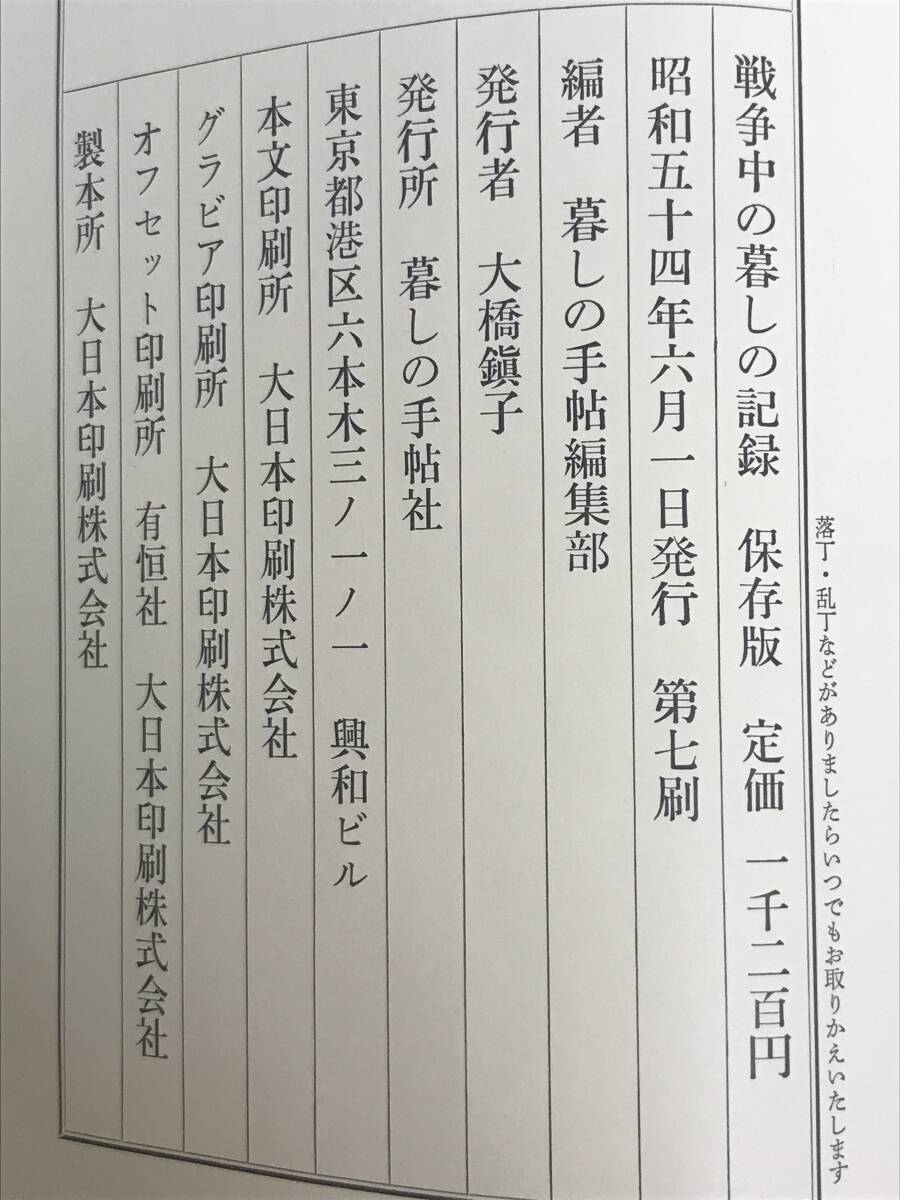 落丁・乱丁などがありましたらいつでもお取りかえいたします
戦争中の暮しの記録　保存版　定価　一千二百円
昭和五十四年六月一日発行　第七刷
編者　暮しの手帖編集部
発行者　大橋鎭子
発行所　暮しの手帖社
東京都港区六本木三ノ一ノ一　興和ビル
本文印刷所　大日本印刷株式会社
グラビア印刷所　大日本印刷株式会社
オフセット印刷所　有恒社　大日本印刷株式会社
製本所　大日本印刷株式会社